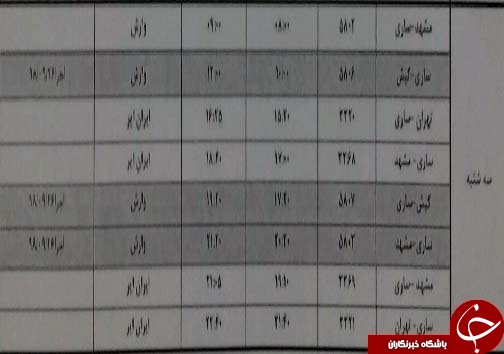 سه شنبه
مشهد-ساری ۵۸۰۲ ۰۸:۰۰ ۰۹:۰۰ وارش
ساری-کیش ۵۸۰۶ ۱۰:۰۰ ۱۲:۰۰ وارش اجرا ۹۸/۰۹/۲۶
تهران-ساری ۳۳۲۰ ۱۵:۲۰ ۱۶:۲۵ ایران ایر
ساری-مشهد ۳۳۶۸ ۱۷:۰۰ ۱۸:۴۰ ایران ایر
کیش-ساری ۵۸۰۷ ۱۷:۲۰ ۱۹:۲۰ وارش اجرا ۹۸/۰۹/۲۶
ساری-مشهد ۵۸۰۳ ۲۰:۲۰ ۲۱:۲۰ وارش اجرا ۹۸/۰۹/۲۶
مشهد-ساری ۳۳۶۹ ۲۱:۰۵ ایران ایر
ساری-تهران ۳۳۲۱ ۲۱:۴۰ ۲۲:۴۰ ایران ایر
باشگاه خبرنگاران